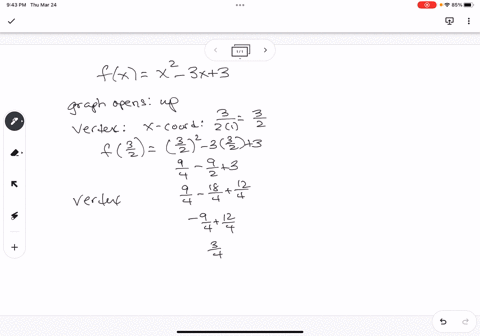 9:43 PM Thu Mar 24
85%
1/1
f(x) = x² - 3x + 3
graph opens: up
vertex: x-coord: 3/2(1) = 3/2
f(3/2) = (3/2)² - 3(3/2) + 3
9/4 - 9/2 + 3
9/4 - 18/4 + 12/4
vertex
-9/4 + 12/4
3/4